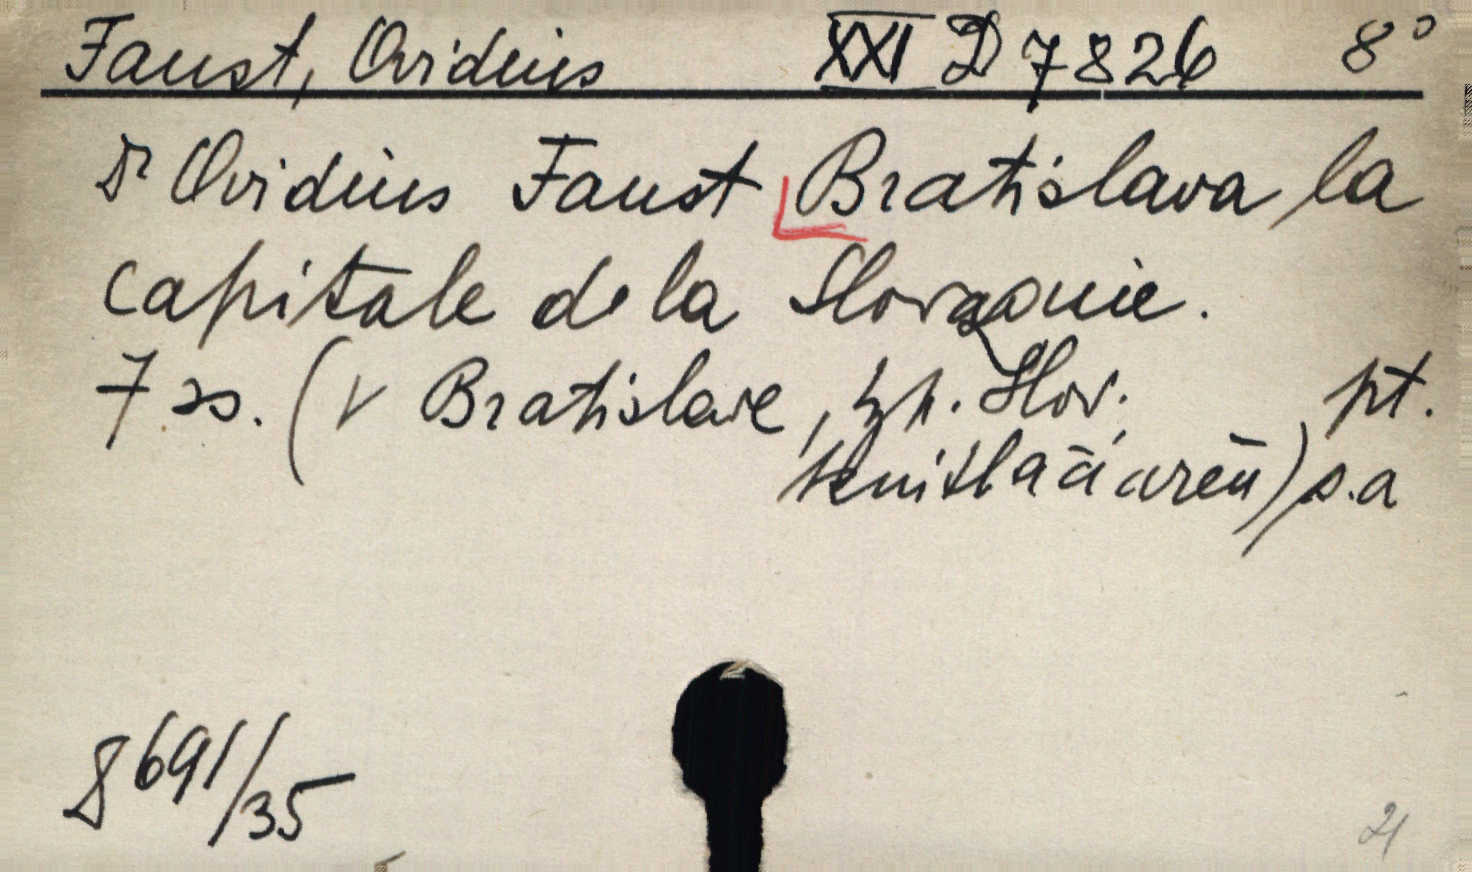 Faust, Ovidius XXI D 7826 8°
Dr Ovidius Faust Bratislava, la
capitale de la Slovaquie.
7 ss. (V Bratislave, Slov. pt.
s.a
8691/35
21